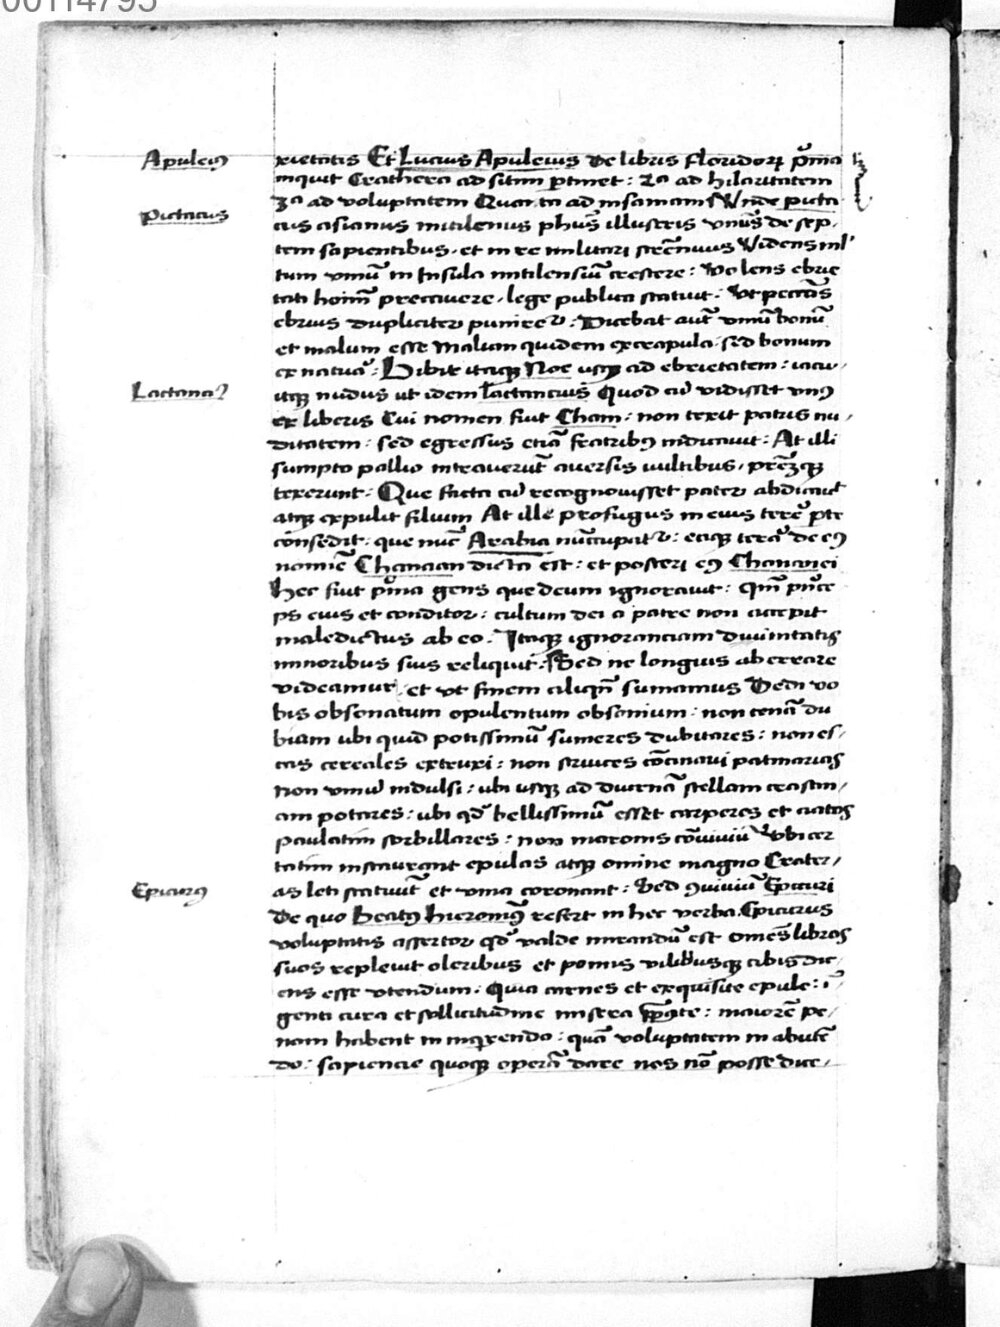 00114795
Apuleiꝰ
xietatis Et Lucius Apuleius de libris floridoꝝ pͥma
inquit Crathera ad sitim ꝑtinet: 2ᵃ ad hilaritatem
3ᵃ ad voluptatem Quarta ad insaniam Vnde picta
Pictacus
cus asianus mitilenus phūs illustris vnus de sep,
tem sapientibus. et in re militari strēnuus Videns ml'
tum vinū in Insula mitilensiū crescere: volens ebrie
tati hoīm precauere, lege publica statuit: vt peccās
ebrius dupliciter puniret᷑: Dicebat aūt vinū bonū
et malum esse Malum quidem ex crapula. sed bonum
ex natura: Bibit itaqꝫ Noe usqꝫ ad ebrietatem: iacu,
Lactanci᷑
itqꝫ nudus ut idem lactancius Quod cū vidisset vnꝰ
ex liberis Cui nomen fuit Cham: non texit patris nu,
ditatem: sed egressus etiā fratribꝰ indicauit: At illi
sumpto pallio intrauerūt auersis uultibus, prēzqꝫ
texerunt: Que facta cū recognouisset pater abdicauit
atqꝫ expulit filium At ille profugus in eius terre pte
consedit: que nūc Arabia nūccupat᷑: eaqꝫ terra de eꝰ
nomīe Chanaan dicta est: et posteri eꝰ Chananei
Hec fuit pͥma gens que deum ignorauit: qm̄ prīce
ps eius et conditor: cultum dei a patre non accepit
maledictus ab eo. Itaqꝫ ignoranciam diuinitatis
minoribus suis reliquit. Sed ne longius aberrare
videamur, et vt finem aliqn̄ sumamus Dedi vo
bis obsonatum opulentum obsonium: non cenā du
biam ubi quid potissimū sumeres dubitares: non es,
cas cereales extruxi: non strues cōcinaui patinarias
non vinū indulsi: ubi usqꝫ ad diurnā stellam crastin,
am potares: ubi qd̄ bellissimū esset carperes et ciatos
paulatim sorbillares: non maronis cōuiuiū vbi cer
tatim instaurant epulas atqꝫ omine magno Crater,
as leti statuūt et vina coronant: Sed ꝯuiuiū Epicuri
Epicurꝰ
De quo Beatꝰ Hieronimꝰ refert in hec verba. Epicurus
voluptatis assertor qd̄ valde mirandū est omēs libros
suos repleuit oleribus et pomis vilibusqꝫ cibis dic,
ens esse vtendum. Quia carnes et exquisite epule: ī,
genti cura et sollicitudine misera ꝓꝑate: maiorē pe,
nam habent in inqrendo: quā voluptatem in abutē
do: sapiencie quoqꝫ operā dare nos nō posse dice,